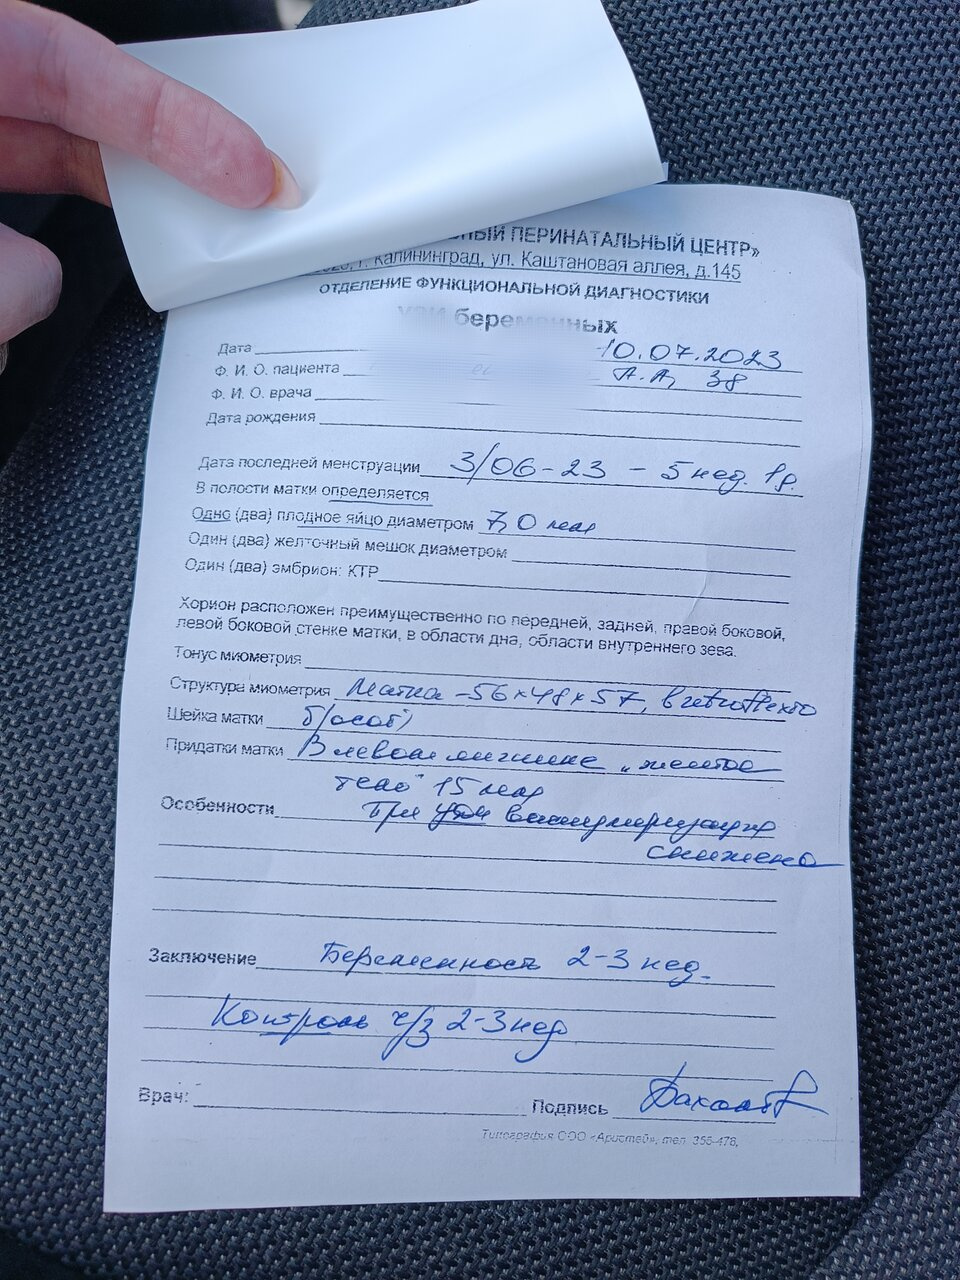 НЫЙ ПЕРИНАТАЛЬНЫЙ ЦЕНТР»
г. Калининград, ул. Каштановая аллея, д.145
ОТДЕЛЕНИЕ ФУНКЦИОНАЛЬНОЙ ДИАГНОСТИКИ
УЗИ беременных
Дата 10.07.2023
Ф. И. О. пациента А.А, 38
Ф. И. О. врача
Дата рождения
Дата последней менструации 3/06-23 - 5 нед. 1д.
В полости матки определяется
Одно (два) плодное яйцо диаметром 7,0 мм
Один (два) желточный мешок диаметром
Один (два) эмбрион: КТР
Хорион расположен преимущественно по передней, задней, правой боковой,
левой боковой стенке матки, в области дна, области внутреннего зева.
Тонус миометрия
Структура миометрия Матка -56×48×57, в retroflexio
Шейка матки б/особ)
Придатки матки В левом яичнике „желтое
тело" 15 мм
Особенности При УЗИ васкуляризация
снижена
Заключение Беременность 2-3 нед.
Контроль ч/з 2-3 нед
Врач:
Подпись
Типография ООО «Аристей», тел. 355-478,